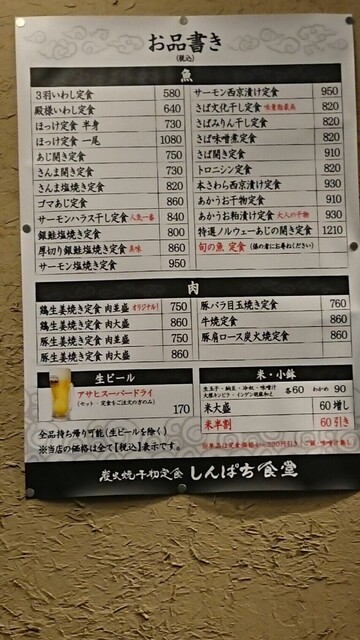 お品書き
(税込)
魚
3羽いわし定食 580
殿様いわし定食 640
ほっけ定食 半身 730
ほっけ定食 一尾 1080
あじ開き定食 750
さんま開き定食 730
さんま塩焼き定食 820
ゴマあじ定食 860
サーモンハラス干し定食 人気一番 840
銀鮭塩焼き定食 800
厚切り銀鮭塩焼き定食 美味 860
サーモン塩焼き定食 950
サーモン西京漬け定食 950
さば文化干し定食 味重指最高 820
さばみりん干し定食 820
さば味噌煮定食 820
さば開き定食 910
トロニシン定食 820
本さわら西京漬け定食 930
あかうお干物定食 910
あかうお粕漬け定食 大人の干物 930
特選ノルウェーあじの開き定食 1210
旬の魚 定食 (係の者にお尋ねください)
肉
鶏生姜焼き定食 肉並盛 オリジナル! 750
鶏生姜焼き定食 肉大盛 860
豚生姜焼き定食 肉並盛 750
豚生姜焼き定食 肉大盛 860
豚バラ目玉焼き定食 760
牛焼き定食 860
豚肩ロース炭火焼定食 860
生ビール
アサヒスーパードライ
(セット・定食をご注文の方のみ) 170
米・小鉢
生玉子・納豆・冷奴・味噌汁
大根キンピラ・インゲン胡麻和え 各60 わかめ 90
米大盛 60増し
米半割 60引き
全品持ち帰り可能(生ビールを除く)
※当店の価格は全て【税込】表示です。
炭火焼干物定食 しんぱち食堂